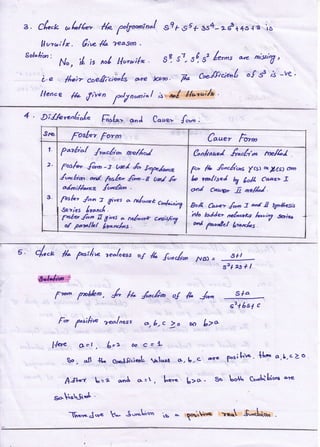 3. Check whether the polynomial S⁹ + S⁵ + 3S⁴ - 2S³ + 4S + 2 is
Hurwitz. Give the reason.
Solution:
No, it is not Hurwitz. S⁸ S⁷, S⁶ S² terms are missing,
i.e their coefficients are zero. The Coefficient of S³ is -ve.
Hence the given polynomial is not Hurwitz
4. Differentiate Foster and Cauer form.
S.no Foster form Cauer Form
1. partial fraction method Continued fraction method
2. foster form - I used for Impedance
function and foster form - II used for
admittance function.
for the functions Y(s) or Z(s) can
be realised by both Cauer I
and Cauer II method.
3. foster form I gives a network Containing
Series branch
foster form II gives a network consisting
of parallel branches.
Both Cauer form I and II synthesis
into ladder networks having series
and parallel branches
5. Check the positive realness of the function N(s) = S+1
S²+2S+1
Solution
From problem, for the function of the form S+a
S²+bS+c
For positive realness a, b, c ≥ 0 b>a
Here a=1, b=2 c=1
So, all the Coefficients Values a, b, c are positive, thus a,b,c≥0
After b=2 and a=1, here b>a. So both Conditions are
Satisfied.
Therefore the function is a positive real function.